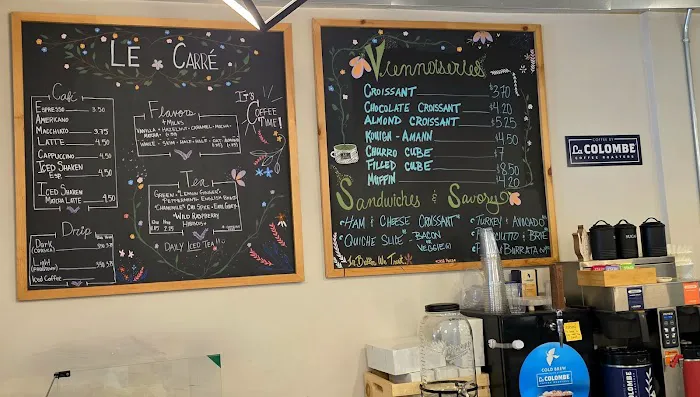 LE CARRÉ
Café
ESPRESSO 3.50
AMERICANO
MACCHIATO 3.75
LATTE 4.50
CAPPUCCINO 4.50
ICED SHAKEN
ESP. 4.50
ICED SHAKEN
MATCHA LATTE 4.50
Drip
DARK
LIGHT
ICED COFFEE
Flavors
& MILKS
VANILLA - HAZELNUT - CARAMEL - MOCHA
MATCHA
WHOLE - SKIM - HALF + HALF - OAT
Tea
GREEN - LEMON GINGER
PEPPERMINT - ENGLISH
CHAMOMILE - CHAI SPICE - EARL GREY
WILD RASPBERRY
HIBISCUS
DAILY ICED TEA
IT'S
COFFEE
TIME!
Viennoiseries
CROISSANT $3.70
CHOCOLATE CROISSANT $4.20
ALMOND CROISSANT $5.25
KOUIGN - AMANN $4.50
CHURRO CUBE $7
FILLED CUBE $8.50
MUFFIN $4.20
Sandwiches & Savory
HAM & CHEESE CROISSANT
QUICHE SLICE - BACON
OR
VEGGIE
TURKEY & AVOCADO
& BRIE
BURRATA
In Butter We Trust
COFFEE BY
La COLOMBE
COFFEE ROASTERS
COLD BREW
La COLOMBE
COFFEE ROASTERS
La COLOMBE